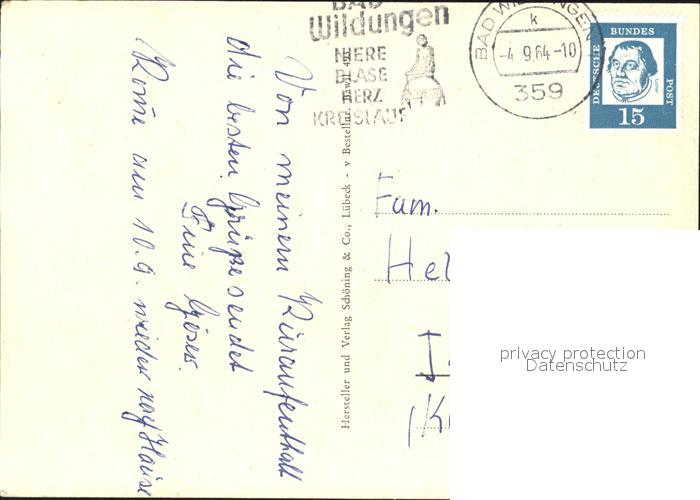 BAD
Wildungen
NIERE
BLASE
HERZ
KREISLAUF
BAD WILDUNGEN
k
-4.9.64-10
359
DEUTSCHE BUNDESPOST
Luther
15
Von meinem Kuraufenthalt
die besten Grüße sendet
Komme am 10.9. wieder nach Hause
Hersteller und Verlag Schöning & Co., Lübeck - v Bestellnr. Bawil 491
Fam.
Hel
privacy protection
Datenschutz